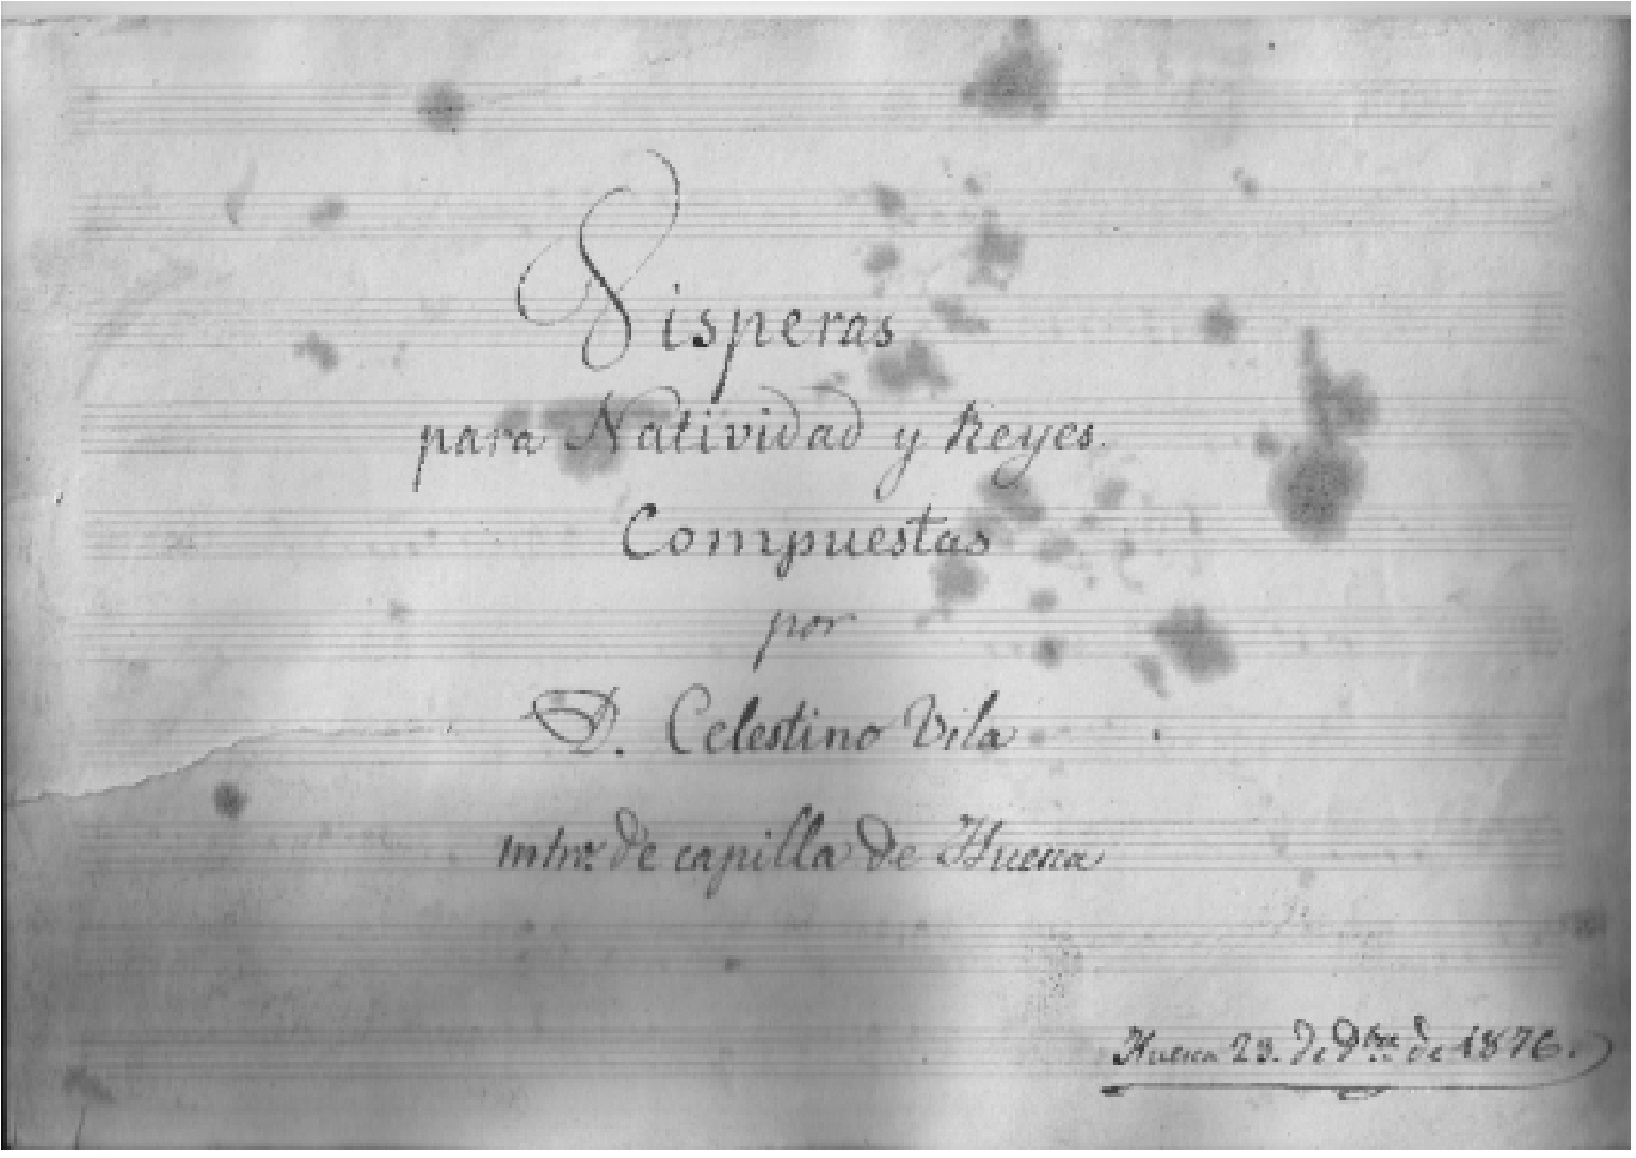 Visperas
para Natividad y Reyes.
Compuestas
por
D. Celestino Vila
de capilla de Huesca
Huesca 23. de de 1876.